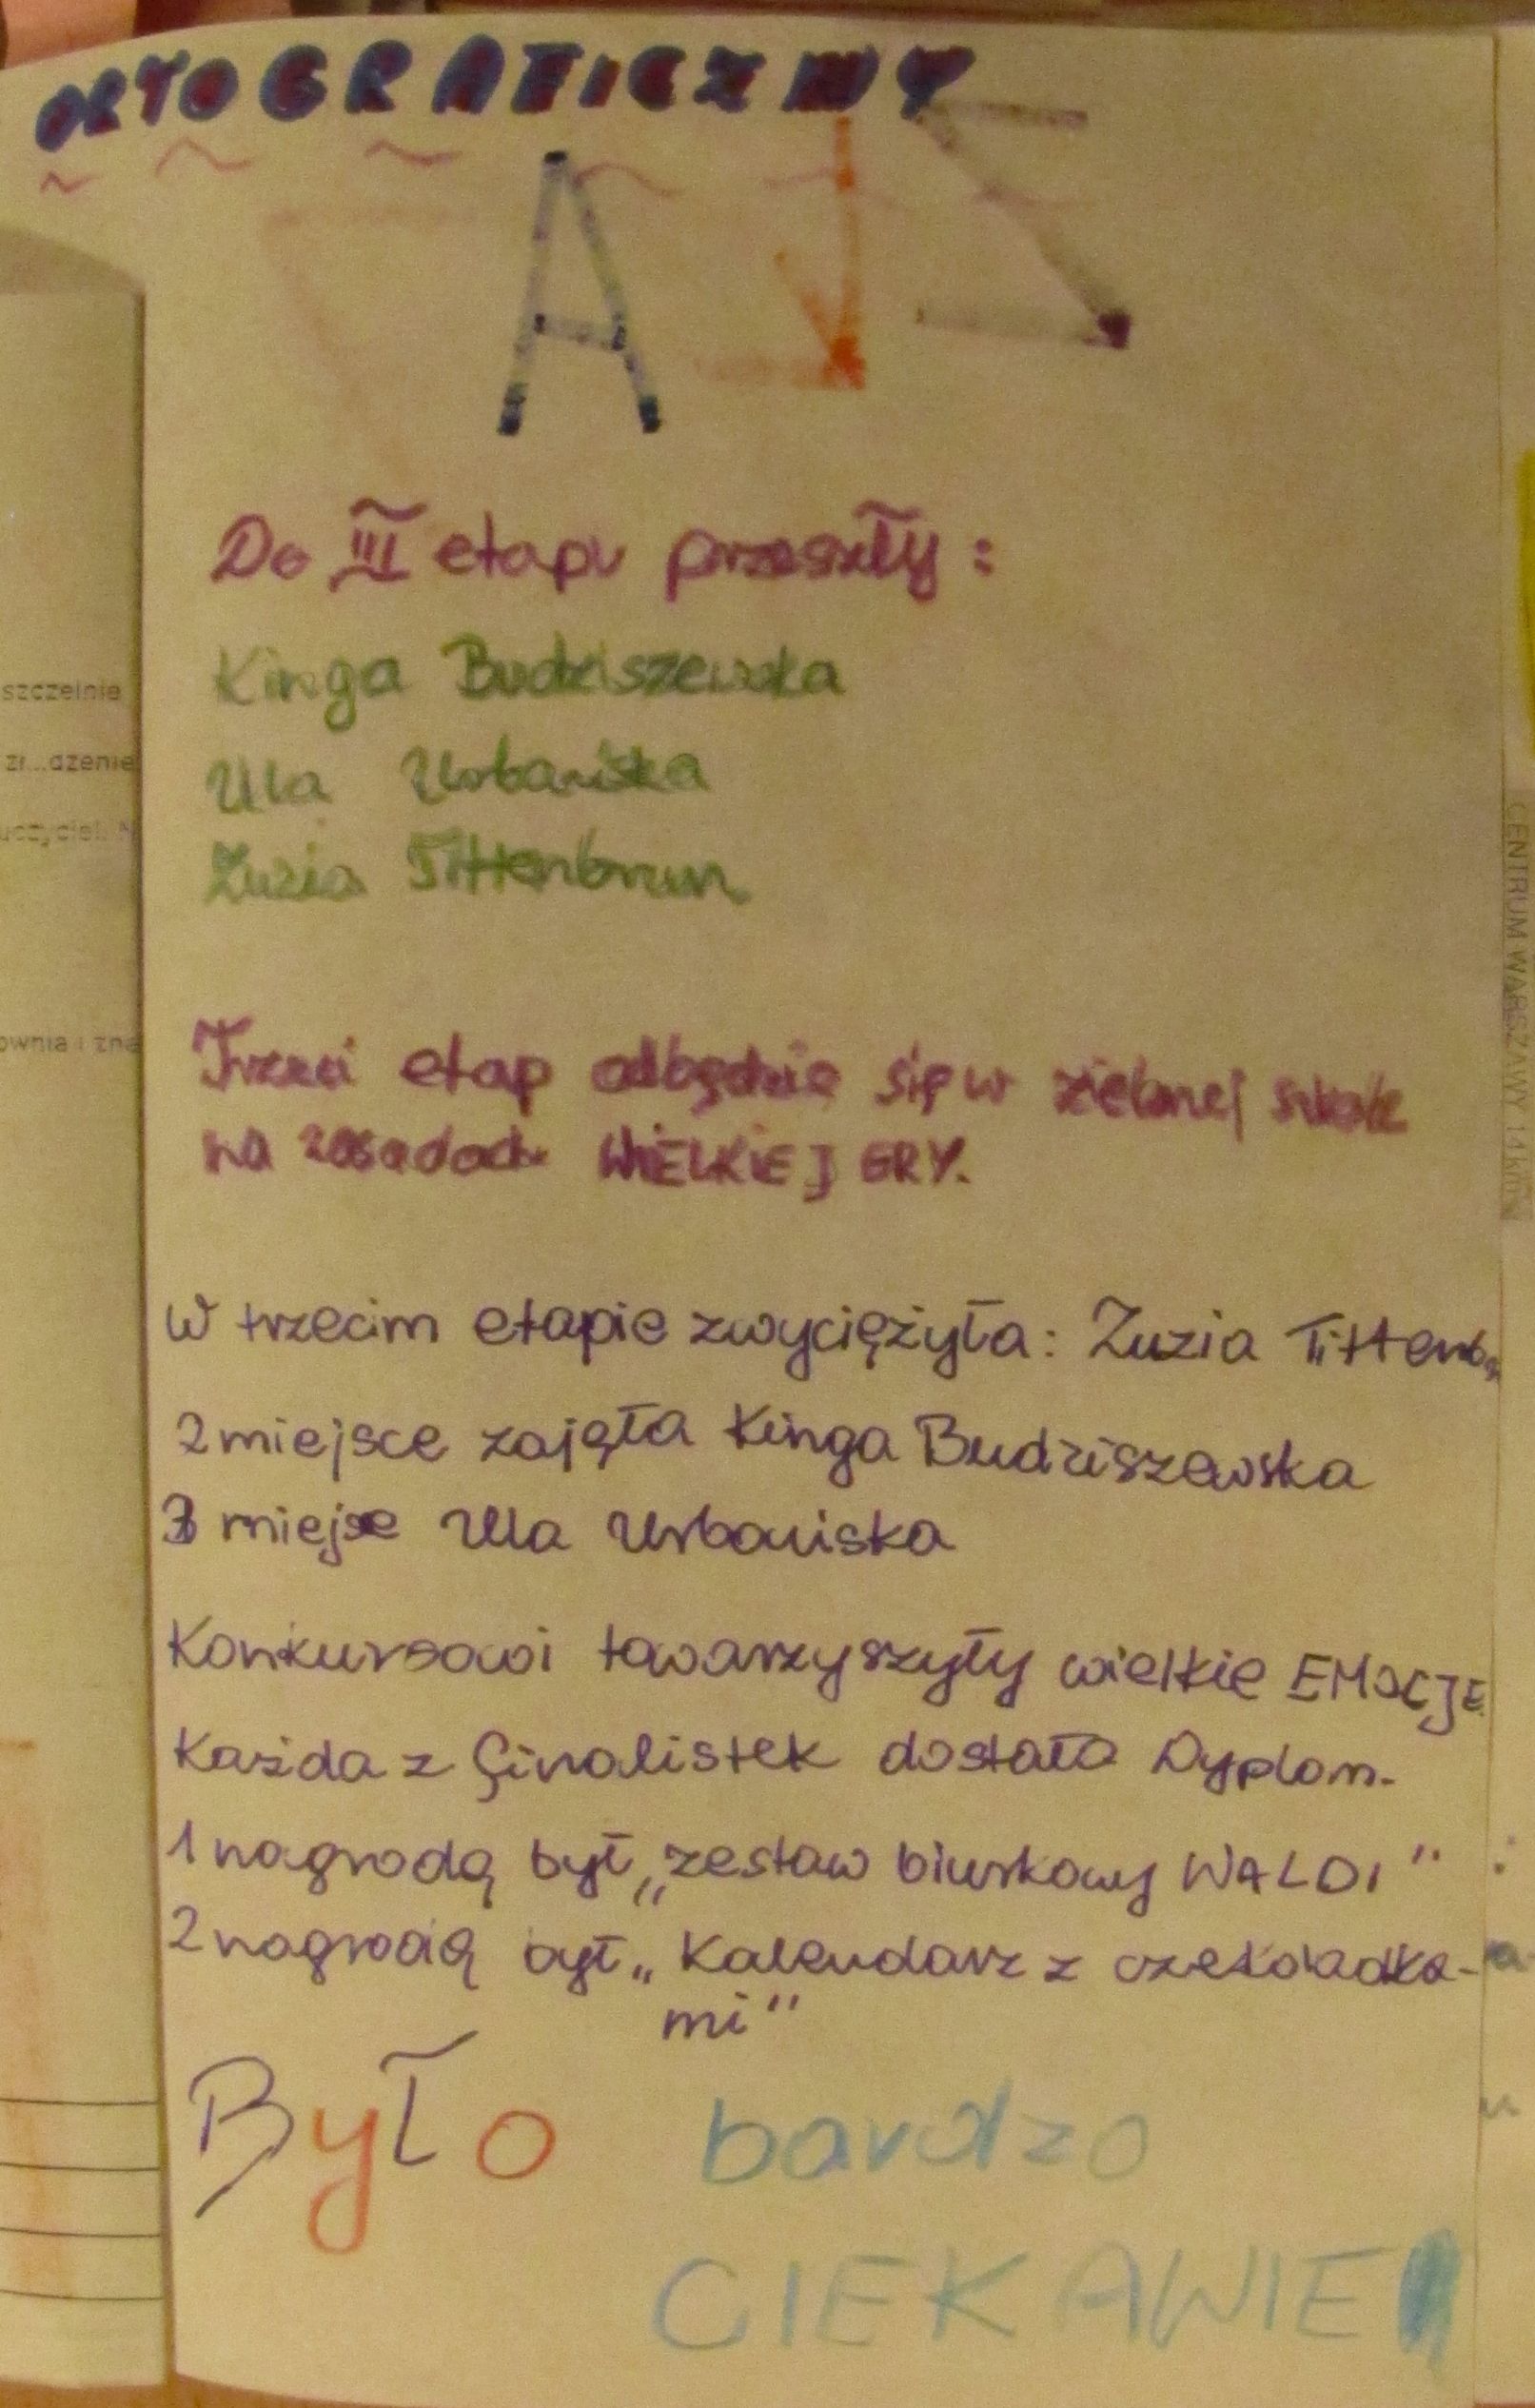 ORTOGRAFICZNY
A
Do III etapu przeszły:
Kinga Budziszewska
Ula Urbańska
Zuzia Tittenbrun
Trzeci etap odbędzie się w zielonej szkole
na zasadach WIELKIEJ GRY.
W trzecim etapie zwyciężyła: Zuzia Tittenb
2 miejsce zajęła Kinga Budziszewska
3 miejsce Ula Urbańska
Konkursowi towarzyszyły wielkie EMOCJE
Każda z finalistek dostała Dyplom.
1 nagrodą był „zestaw biurkowy WALDI"
2 nagrodą był „Kalendarz z czekoladka-
mi"
Było bardzo
CIEKAWIE
szczelnie
CENTRUM WARSZAWY 14 km